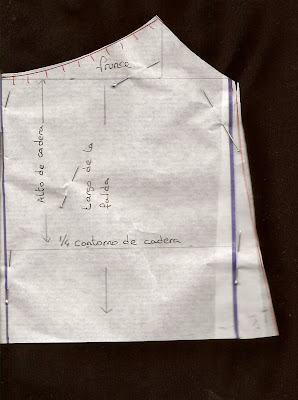 frunce
Alto de cadera
Largo de la
falda
1/4 contorno de cadera